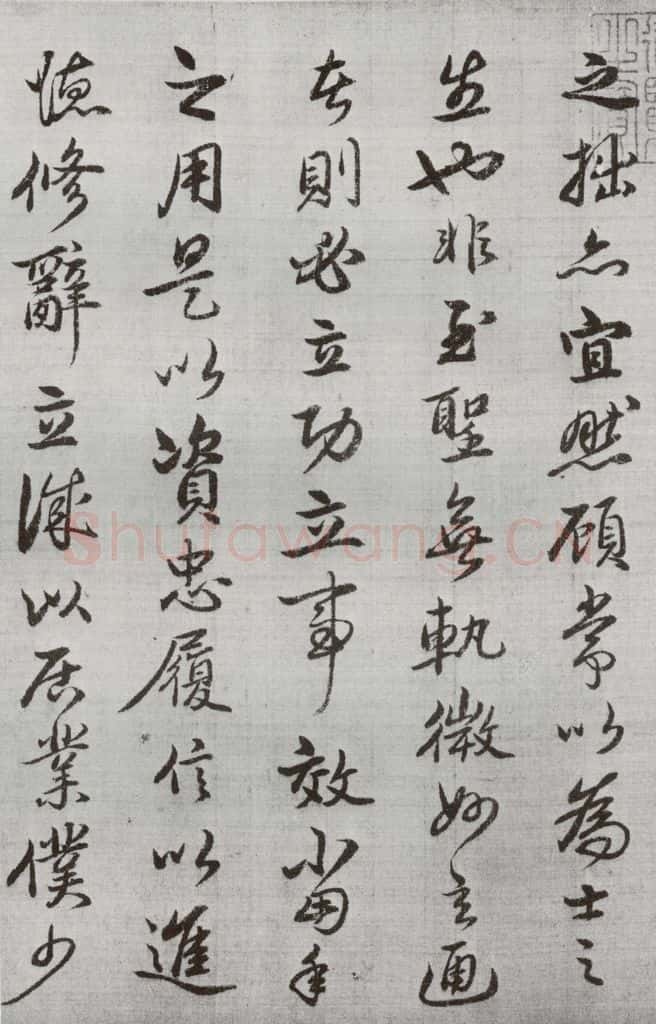 之拙亦宜然顧常以為士之
生也非至聖無軌微妙玄通
者則必立功立事效當年
之用是以資忠履信以進
德修辭立誠以居業僕少
Shufawang.CN